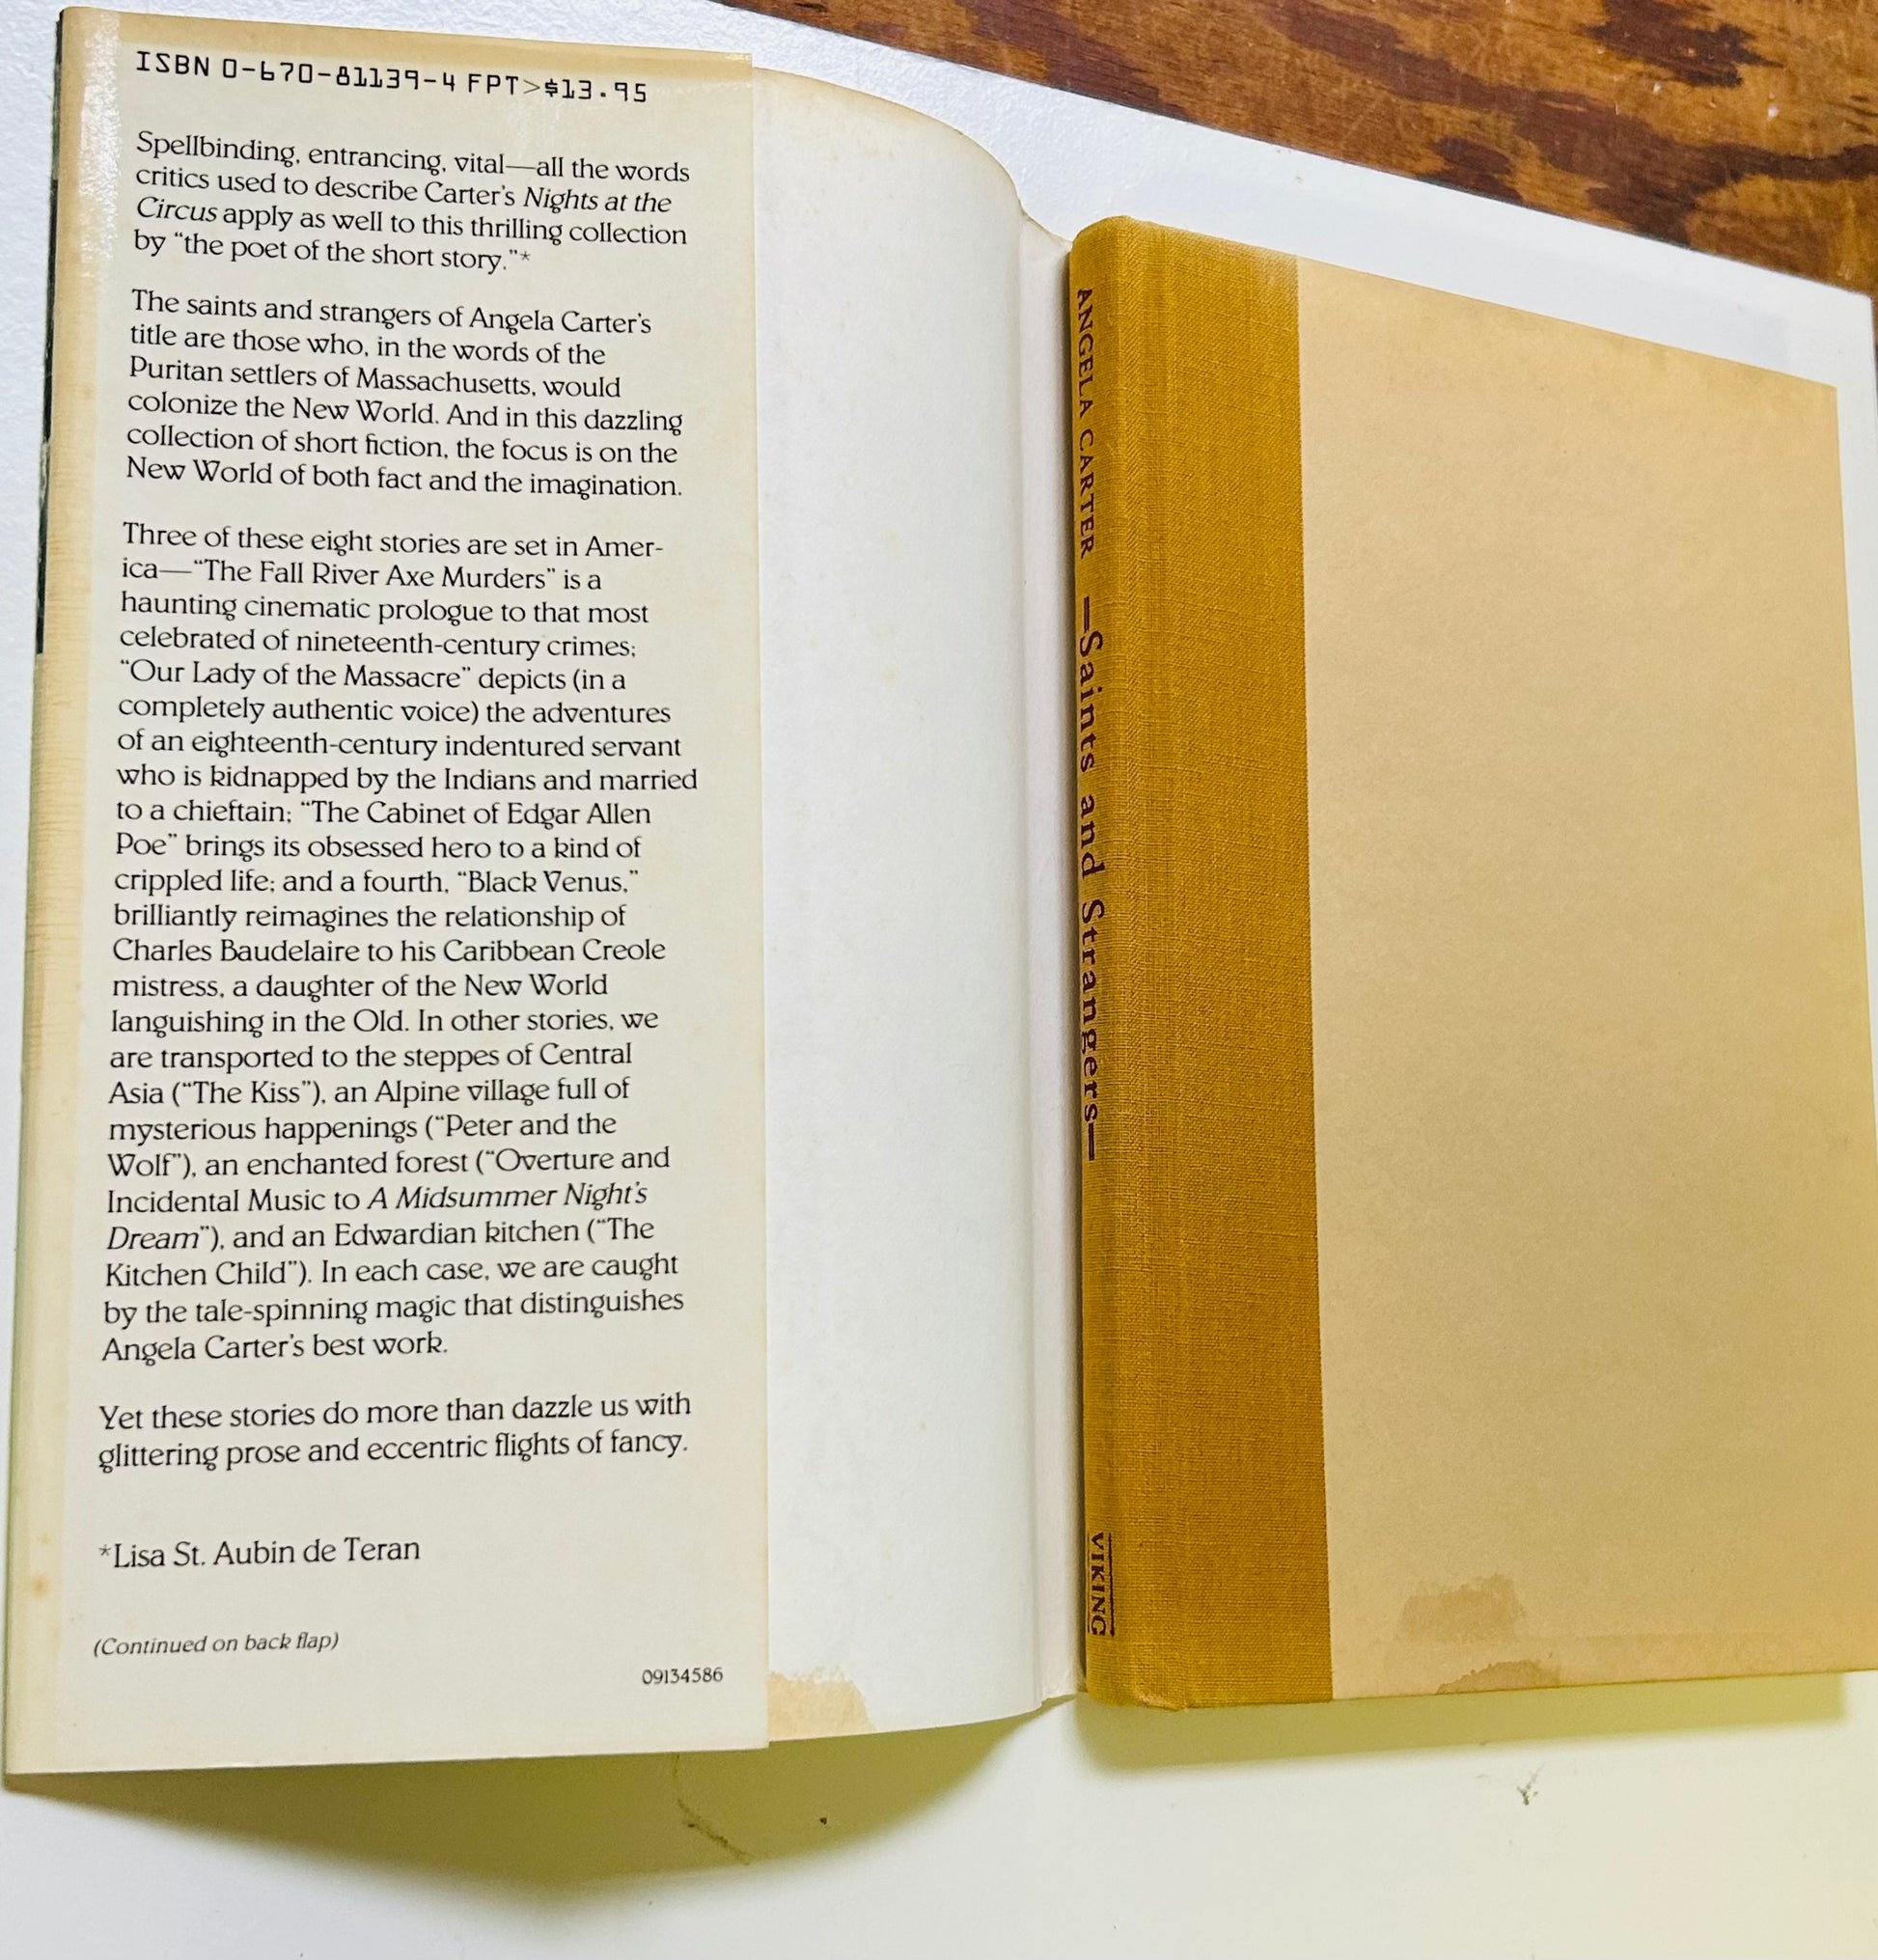 ISBN 0-670-81139-4 FPT>$13.95
Spellbinding, entrancing, vital—all the words
critics used to describe Carter's Nights at the
Circus apply as well to this thrilling collection
by “the poet of the short story.”*
The saints and strangers of Angela Carter's
title are those who, in the words of the
Puritan settlers of Massachusetts, would
colonize the New World. And in this dazzling
collection of short fiction, the focus is on the
New World of both fact and the imagination.
Three of these eight stories are set in Amer-
ica—“The Fall River Axe Murders” is a
haunting cinematic prologue to that most
celebrated of nineteenth-century crimes;
“Our Lady of the Massacre” depicts (in a
completely authentic voice) the adventures
of an eighteenth-century indentured servant
who is kidnapped by the Indians and married
to a chieftain; “The Cabinet of Edgar Allen
Poe” brings its obsessed hero to a kind of
crippled life; and a fourth, “Black Venus,”
brilliantly reimagines the relationship of
Charles Baudelaire to his Caribbean Creole
mistress, a daughter of the New World
languishing in the Old. In other stories, we
are transported to the steppes of Central
Asia (“The Kiss”), an Alpine village full of
mysterious happenings (“Peter and the
Wolf”), an enchanted forest (“Overture and
Incidental Music to A Midsummer Night's
Dream”), and an Edwardian kitchen (“The
Kitchen Child”). In each case, we are caught
by the tale-spinning magic that distinguishes
Angela Carter's best work.
Yet these stories do more than dazzle us with
glittering prose and eccentric flights of fancy.
*Lisa St. Aubin de Teran
(Continued on back flap)
09134586
ANGELA CARTER —Saints and Strangers— VIKING